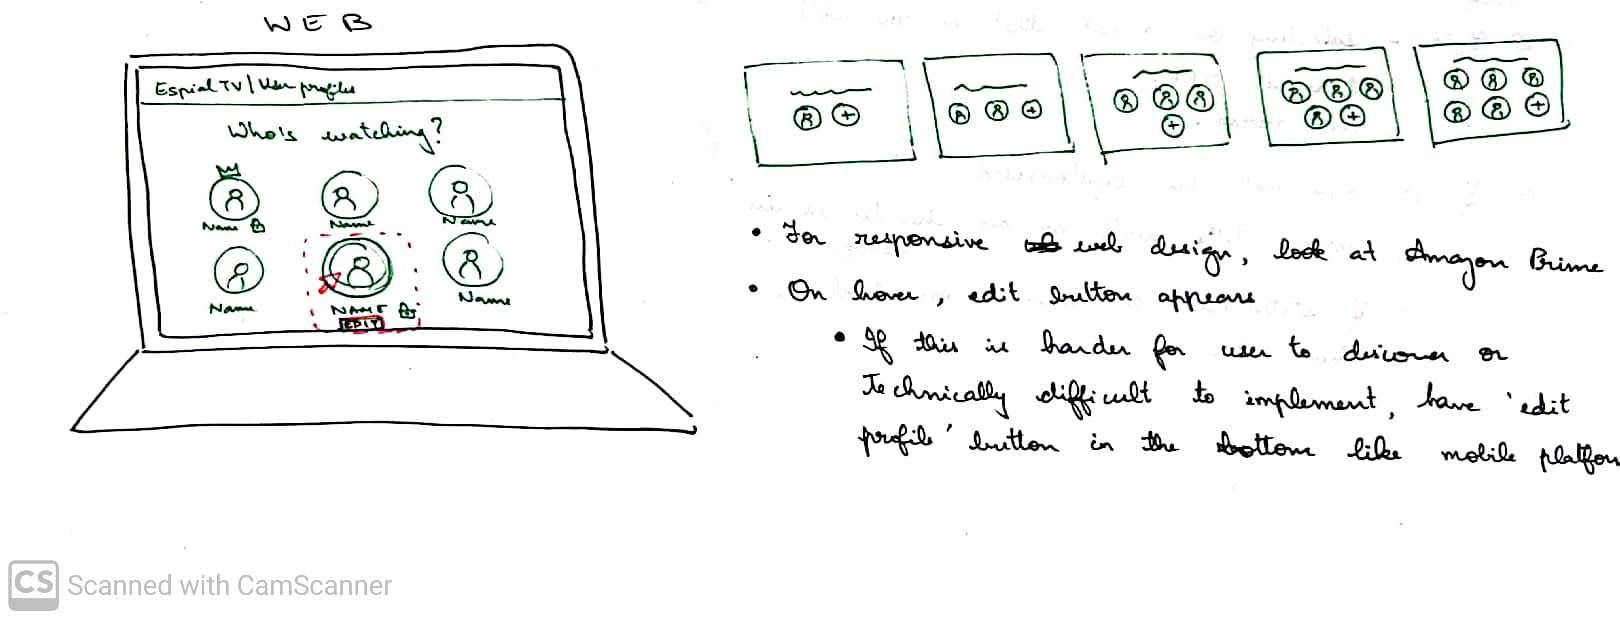 WEB
Espial TV | User profiles
Who's watching?
Name
Name
Name
Name
NAME
Name
EDIT
• For responsive web design, look at Amazon Prime
• On hover, edit button appears
• If this is harder for user to discover or
technically difficult to implement, have 'edit
profile' button in the bottom like mobile platfor
CS Scanned with CamScanner